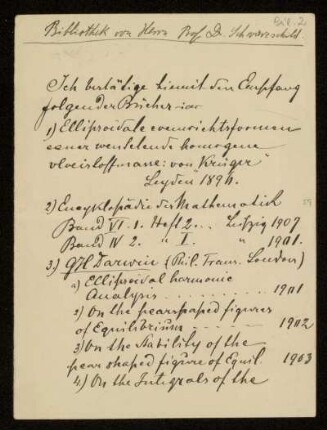 Bibliothek von Herrn Prof. D. Schwarzschild
Ich bestätige hiemit den Empfang
folgender Bücher
1) Ellipsoidale evenwichtsformen
eener wentelende homogene
vloeistofmassa: von Krüger
Leyden 1896.
2) Encyklopädie der Mathematik
Band VI. 1. Heft 2. .. Leipzig 1907
Band IV 2. " 1. " 1901.
3.) G H Darwin (Phil. Trans. London)
1) Ellipsoidal harmonic
Analysis . . . . . 1901
2) On the pearshaped figures
of Equilibrium - - - - - - 1902
3) On the Stability of the
pear shaped figure of Equil. 1903
4) On the Integrals of the